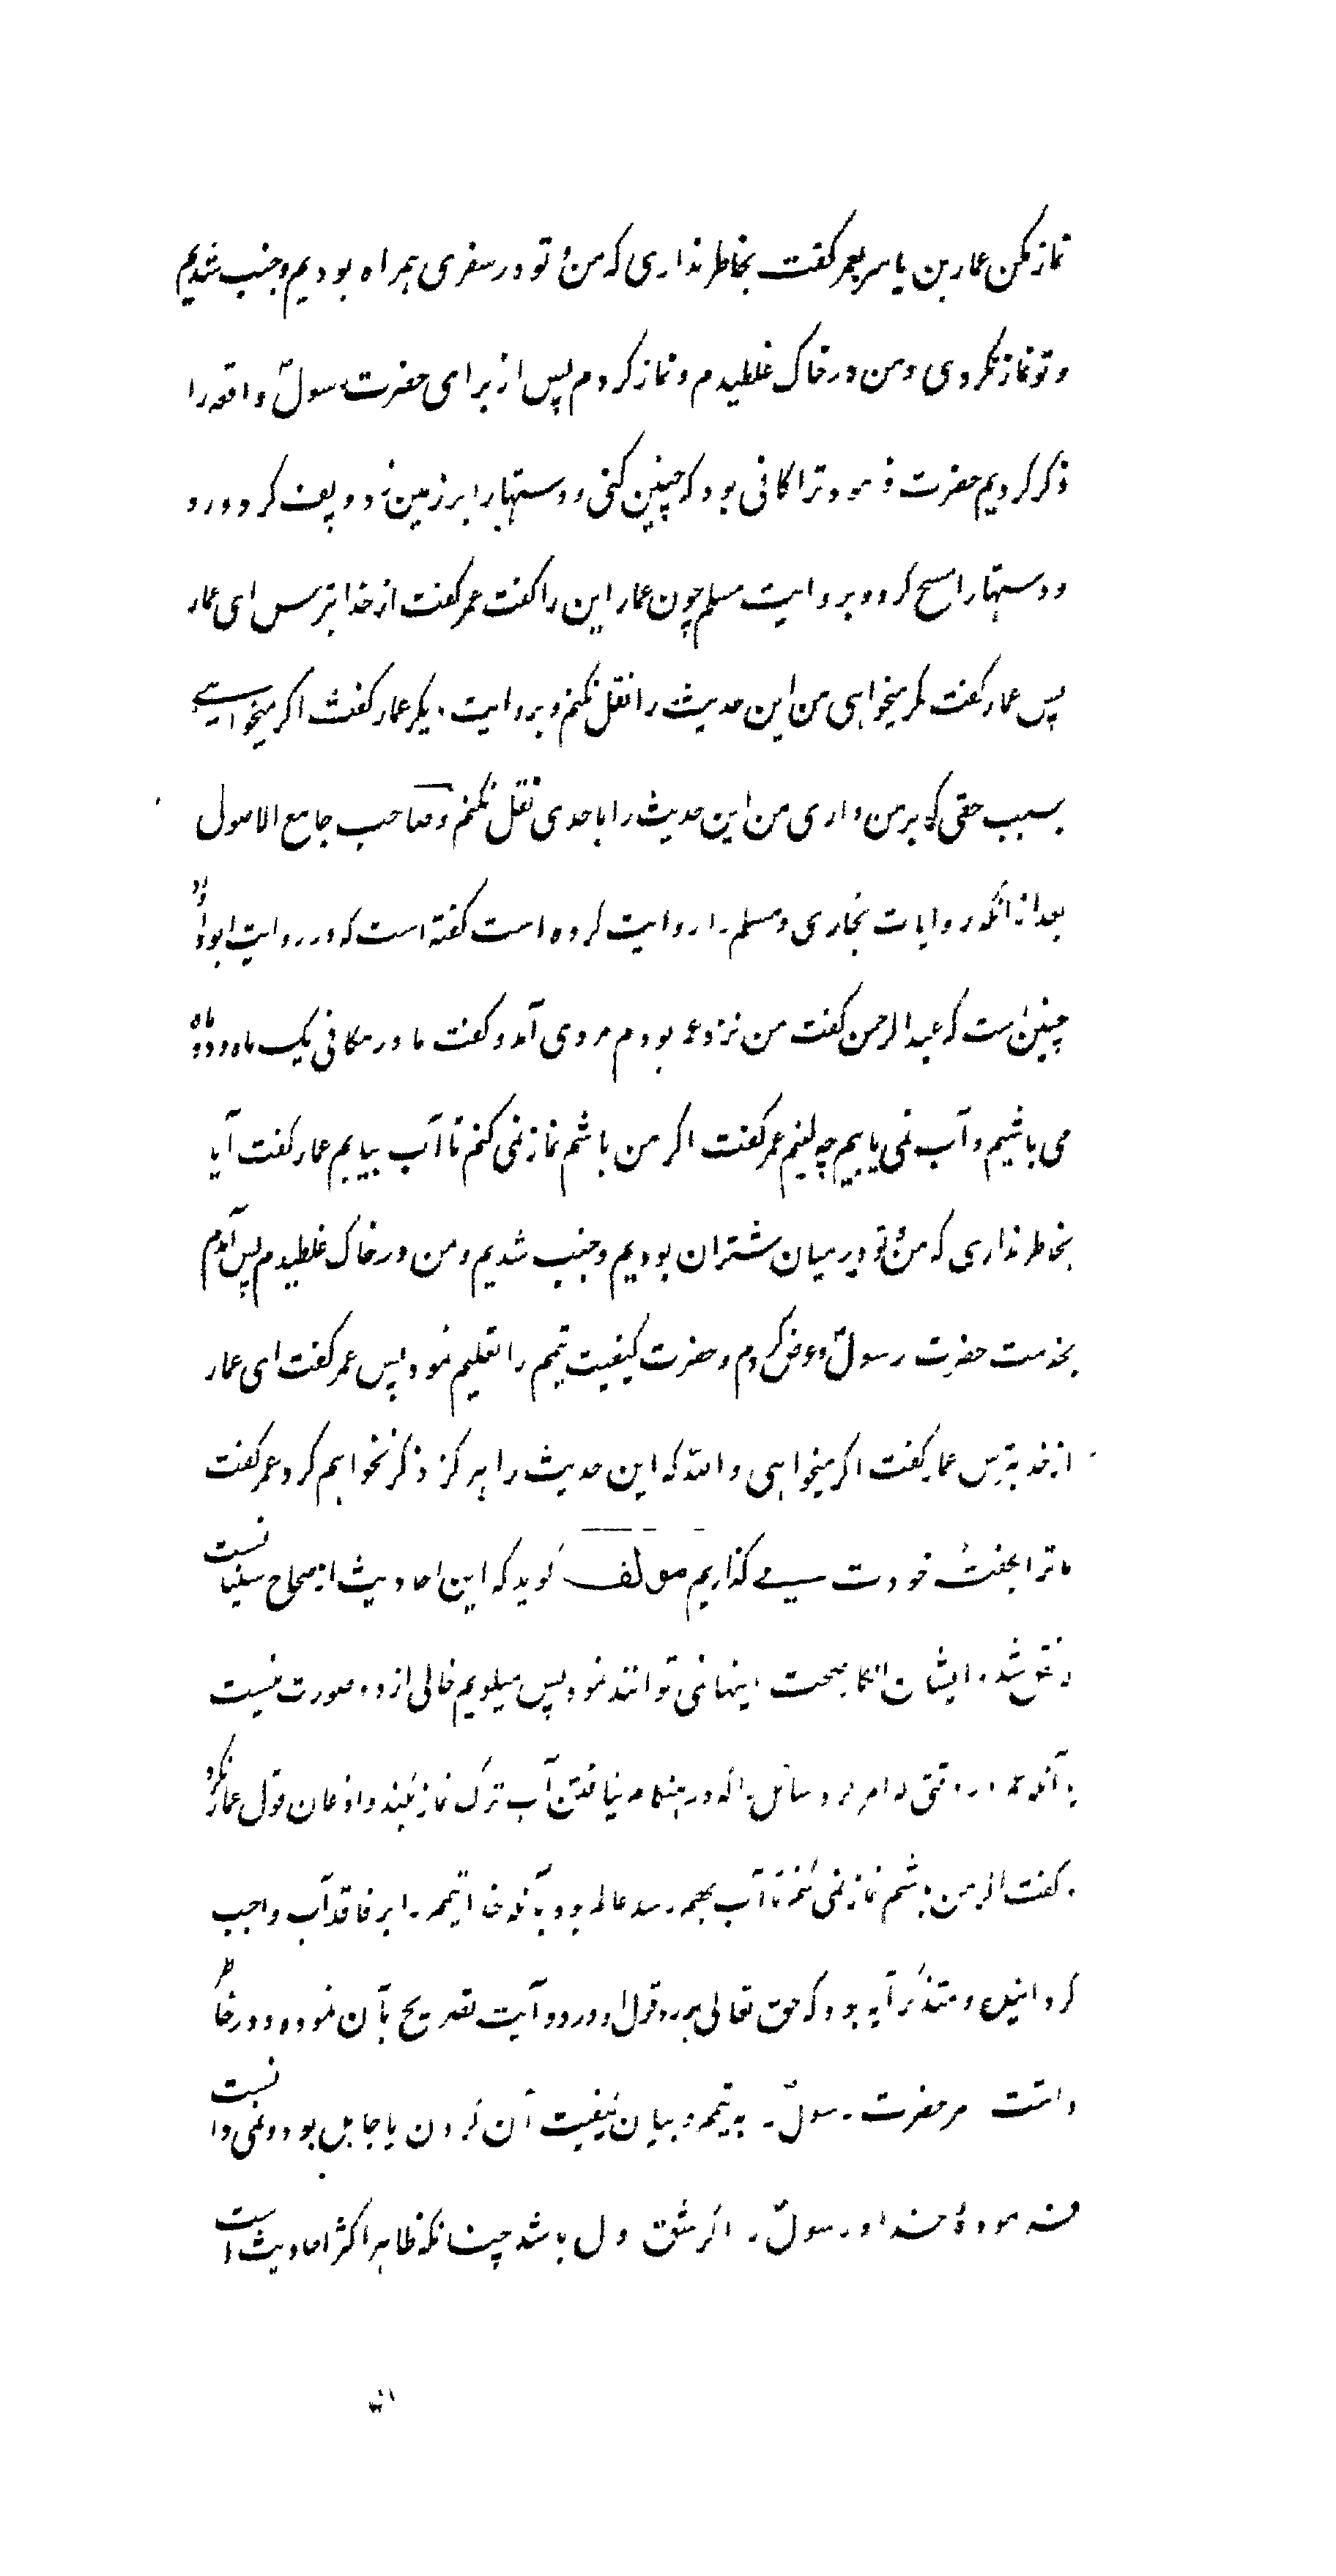 نماز مکن عمار بن یاسر بعمر گفت بخاطر نداری که من و تو در سفری همراه بودیم و جنب شدیم
و تو نماز نکردی و من در خاک غلطیدم و نماز کردم پس از برای حضرت رسولؐ واقعه را
ذکر کردیم حضرت فرمود ترا کافی بود که چنین کنی و دستها را بر زمین زد و پف کرد و رو
و دستها را مسح کرد و بروایت مسلم چون عمار این را گفت عمر گفت از خدا بترس ای عمار
پس عمار گفت مگر میخواهی من این حدیث را نقل نکنم و بروایت دیگر عمار گفت اگر میخواهی
بسبب حقی که بر من داری من این حدیث را باحدی نقل نکنم و صاحب جامع الاصول
بعد از آنکه روایات بخاری و مسلم را روایت کرده است گفته است که در روایت ابو داود
چنین است که عبد الرحمن گفت من نزد عمر بودم مردی آمد و گفت ما در مکانی یک ماه و دو ماه
می باشیم و آب نمی یابیم چه کنیم عمر گفت اگر من باشم نماز نمی کنم تا آب بیابم عمار گفت آیا
بخاطر نداری که من و تو در میان شتران بودیم و جنب شدیم و من در خاک غلطیدم پس آمدم
بخدمت حضرت رسولؐ و عرض کردم و حضرت کیفیت تیمم را تعلیم نمود پس عمر گفت ای عمار
از خدا بترس عمار گفت اگر میخواهی والله که این حدیث را هرگز ذکر نخواهم کرد عمر گفت
ما ترا بگفتهٔ خودت می گذاریم مولف گوید که این احادیث از صحاح سنیانست
شد و ایشان انکار صحت اینها نمی توانند نمود پس میگویم خالی از دو صورت نیست
یا آنکه عمر در وقتی که امر کرد سائل را که در هنگام نیافتن آب ترک نماز بکند و اذعان قول عمار نکرد
و گفت اگر من باشم نماز نمی کنم تا آب بهم رسد عالم بود بآنکه خدا تیمم را بر فاقد آب واجب
گردانیده و متذکر آیه بود که حق تعالی در دو آیت تصریح بآن نموده و در خاطر
داشت امر حضرت رسولؐ را به تیمم و بیان کیفیت آن کردن یا جاهل بود و نمی دانست
فرمودهٔ خدا و رسولؐ را اگر شق اول باشد چنانکه ظاهر اکثر احادیث است